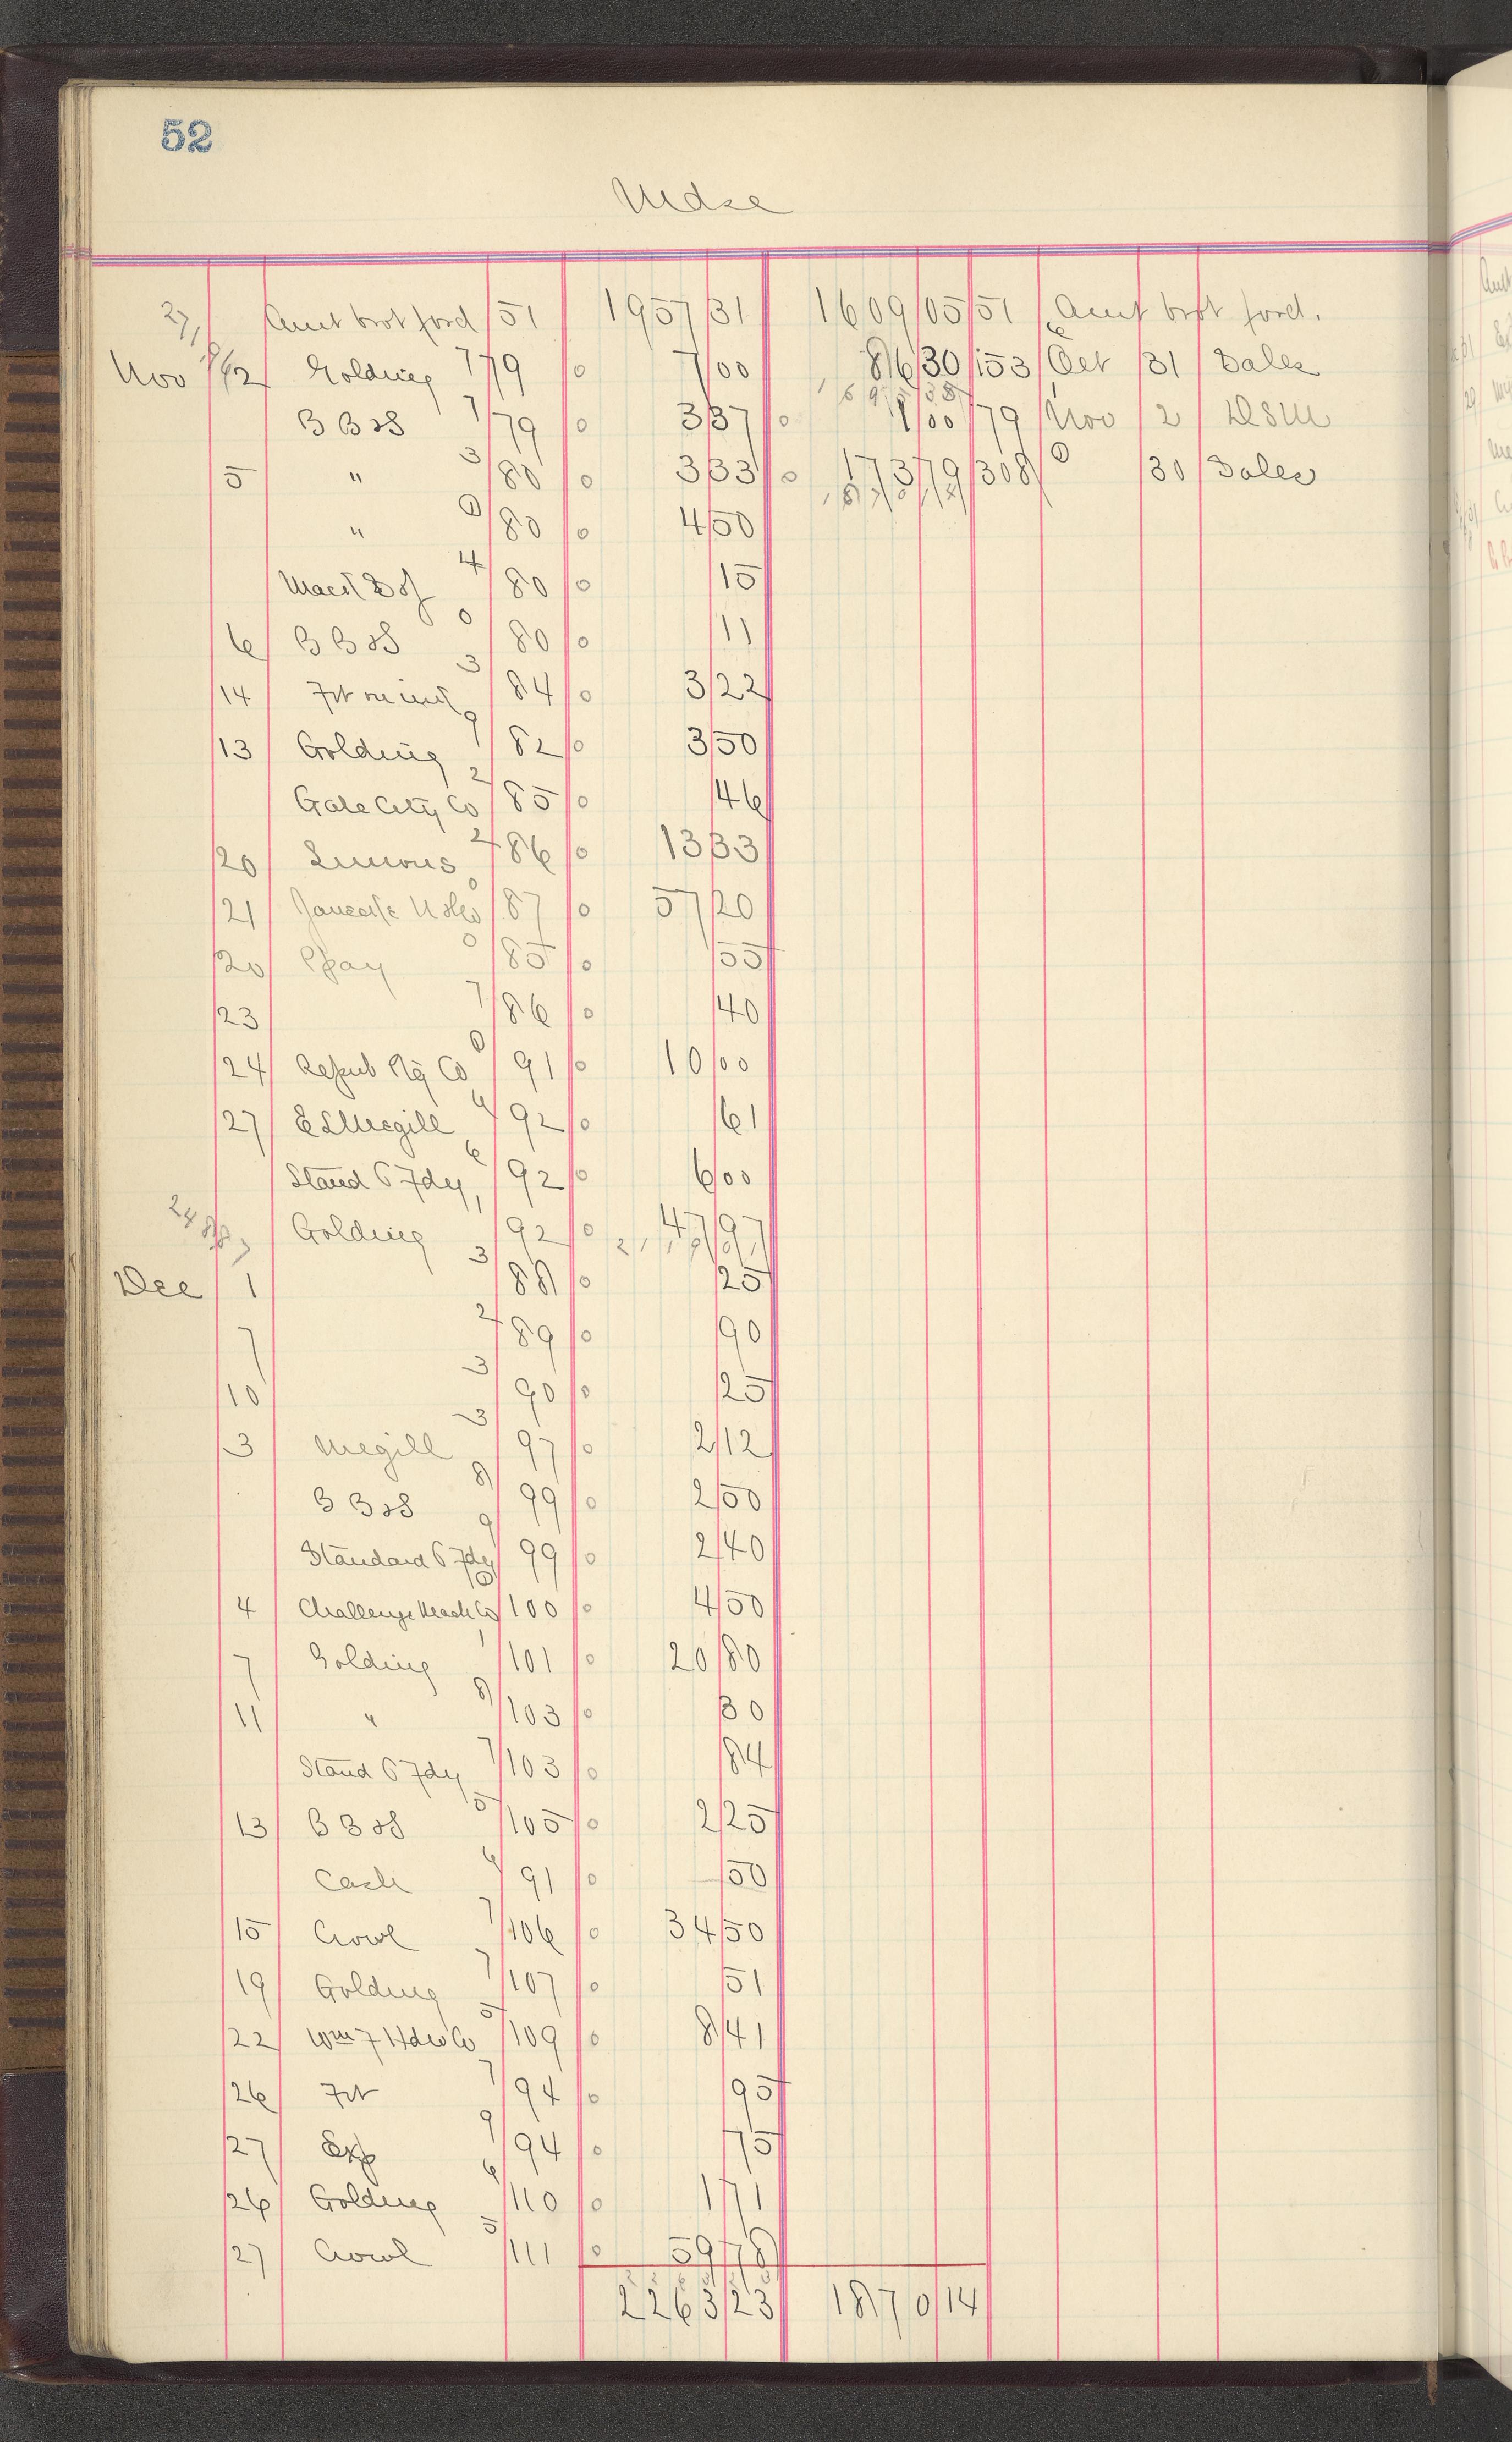 52
Mdse
Amt brot ford 51 1957 31 1609 05 51 Amt brot ford.
Nov 2 Golding 79 0 7 00 86 30 153 Oct 31 Sales
B B & S 79 0 3 37 0 1 00 79 Nov 2 D S M
5 " 80 0 3 33 0 173 79 308 30 Sales
" 80 0 4 50
80 0 15
6 B B & S 80 0 11
14 Frt 84 0 3 22
13 Golding 82 0 3 50
Gate City Co 85 0 46
20 86 0 13 33
21 87 0 57 20
20 85 0 55
23 86 0 40
24 Repub Co 91 0 10 00
27 E L Megill 92 0 61
Stand 92 0 6 00
Golding 92 0 47 97
Dec 1 88 0 25
7 89 0 90
10 90 0 25
3 Megill 97 0 2 12
B B & S 99 0 2 50
Standard 99 0 2 40
4 Challenge Mach Co 100 0 4 50
7 Golding 101 0 20 80
11 " 103 0 30
Stand 103 0 84
13 B B & S 105 0 2 25
Cash 91 0 50
15 Crowl 106 0 34 50
19 Golding 107 0 51
22 Wm F Hdw Co 109 0 8 41
26 Frt 94 0 95
27 Exp 94 0 75
26 Golding 110 0 1 71
27 Crowl 111 0 59 78
2263 23 1870 14